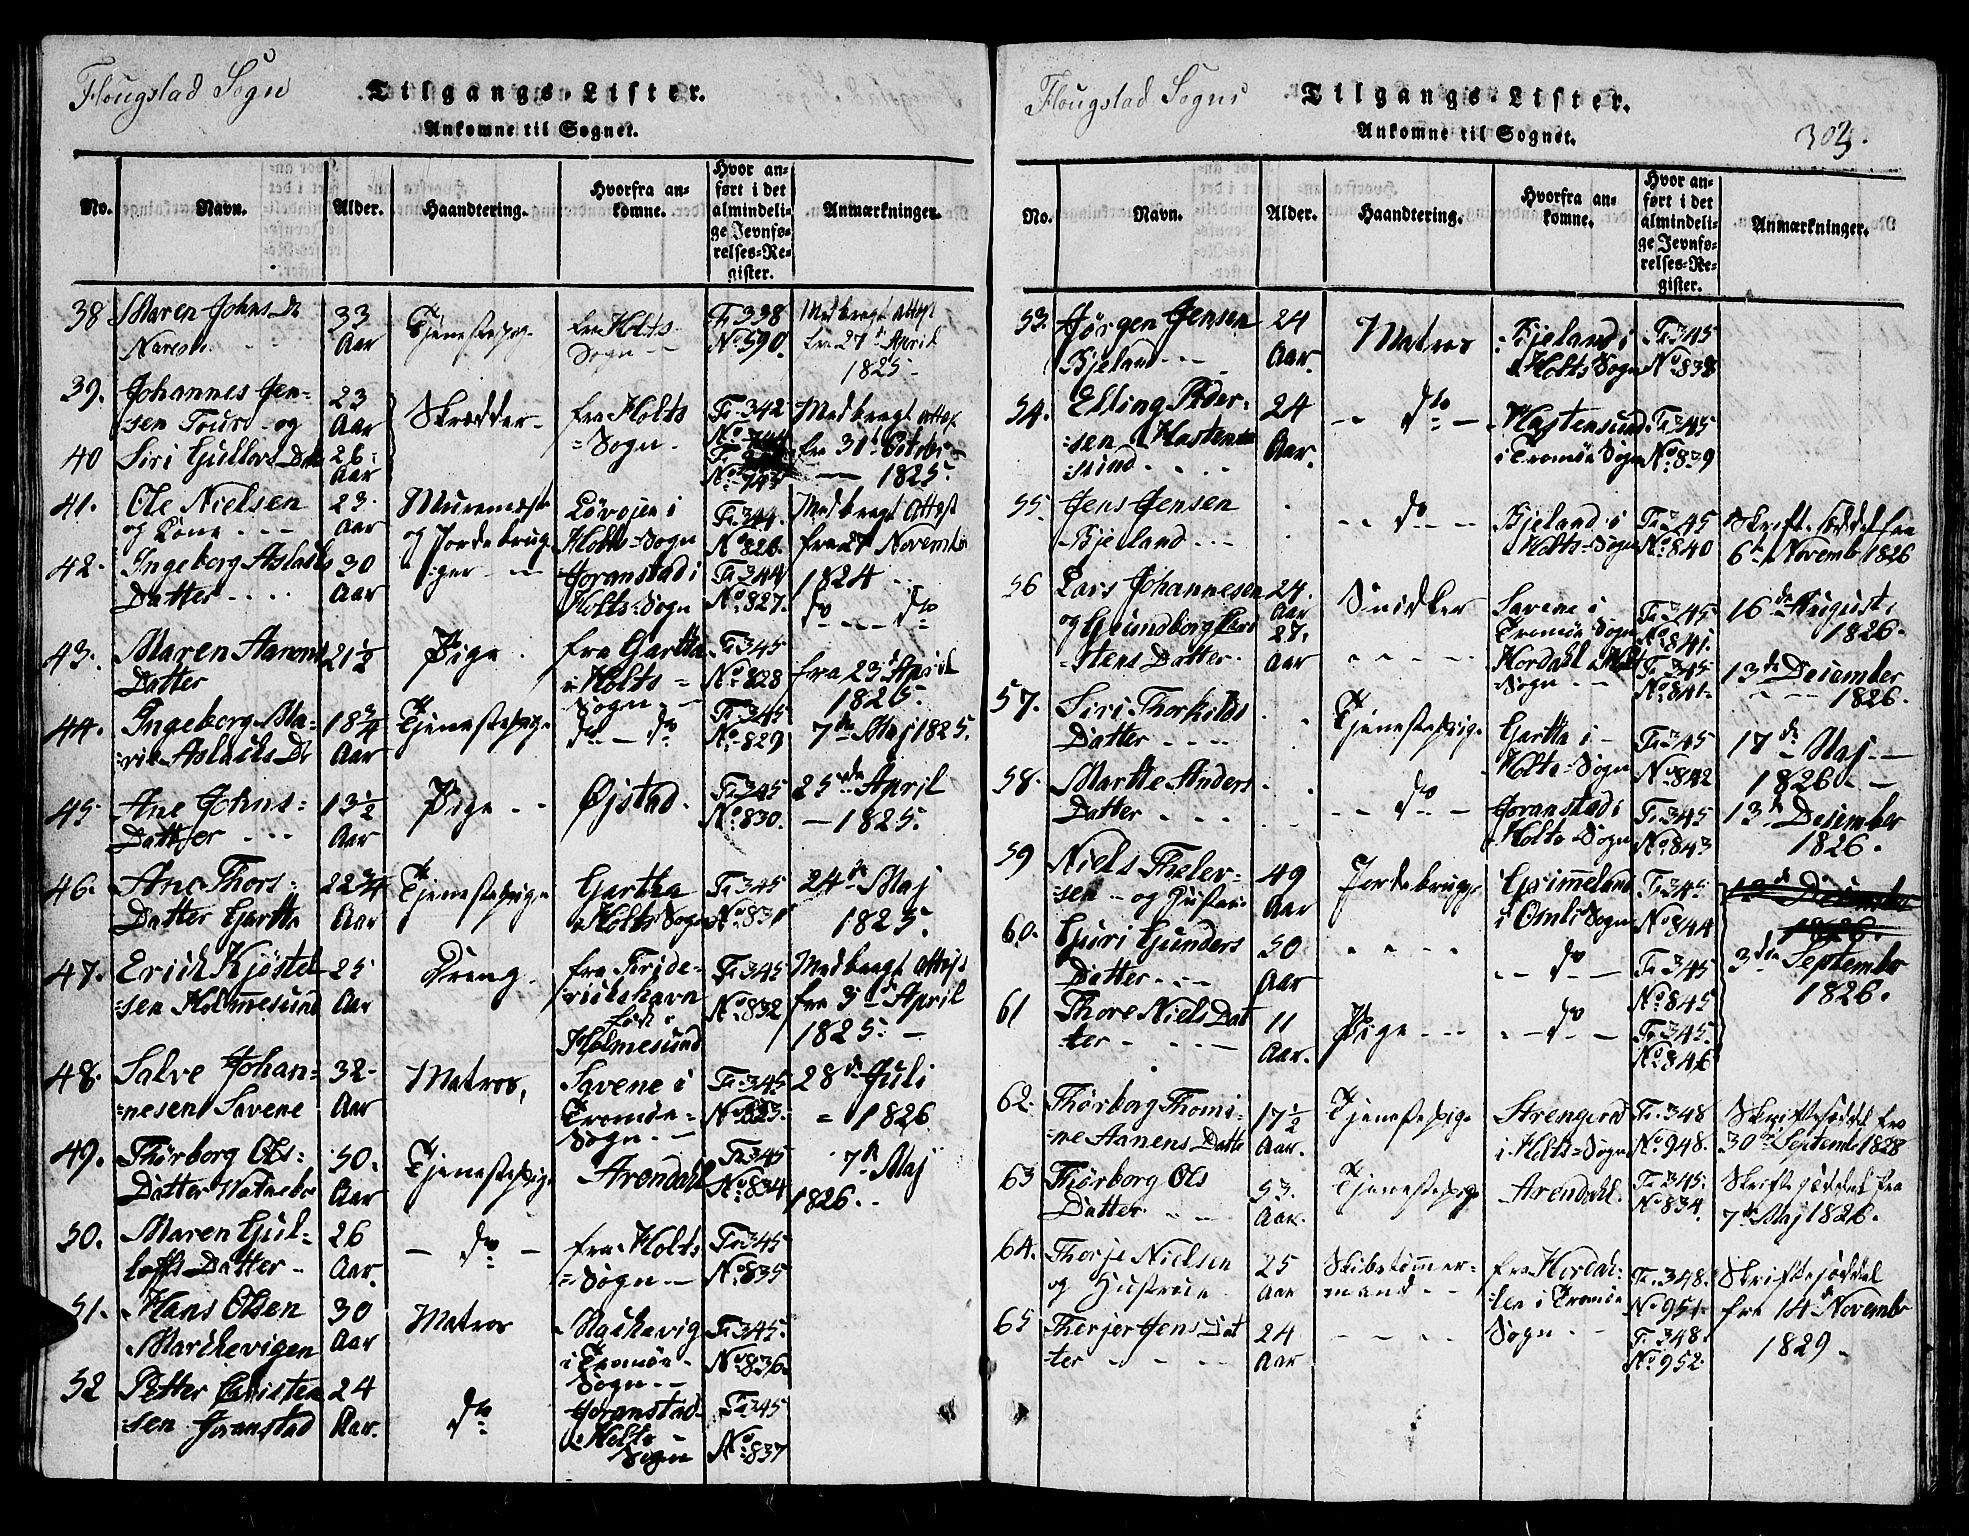 Flougstad Sogn
Tilgangs-Lister.
Ankomne til Sognet.
No. Navn. Alder. Haandtering. Hvorfra ankomne. Hvor anført i det almindelige Jevnførelses-Register. Anmærkninger.
38 Maren Johns Dr 33 Aar Tjenestepig. fra Holts Sogn Fr 338 No 590. Medbragt Attest fra 27 April 1825
39. Johannes Jensen og 23 Aar Skrædder fra Holts Sogn. Fr 342 Medbragt Attest fra 31 October 1825.
40 Siri Gullovs Datt 26 Aar
41. Ole Nielsen og Kone 23. Aar Muremester og Jordebruger Løvøjen i Holts Sogn Fr 344. No 826. Medbragt Attest fra 27 November 1824
42. Ingeborg Aslacks Datter 30 Aar Goranstad i Holts Sogn Fr 344 No 827. do do
43. Maren Aanons Datter 21½ Pige fra Gartta i Holts Sogn Fr 345 No 828 fra 23 April 1825.
44. Ingeborg Marie Aslacks Dr 18¾ Aar Tjenestepige do do Fr 345 No 829 7de Maj 1825.
45 Ane Johns Datter 13½ Aar Pige Øjstad. Fr 345 No 830. 25de April 1825.
46. Ane Thors Datter Gartta 22¾ Aar Tjenestepige Gartha i Holts Sogn Fr 345 No 831 24de Maj 1825.
47. Erich Kjöstelsen Holmesund 25 Aar Dreng. fra Friderichshavn født i Holmesund Fr 345 No 832 Medbragt Attest fra 5 April 1825
48. Salve Johannesen Savene 32 Aar Matros, Savene i Tromøe Sogn Fr 345 No 833. 28de Juli 1826
49. Thorborg Ols Datter 50. Aar Tjenestepige Arendahl Fr 345 No 834 7de Maj 1826.
50. Maren Gulloffs Datter 26 Aar. do fra Holts Sogn Fr 345 No 835
51. Hans Olsen Marchevigen 30 Aar Matros i Tromøe Sogn Fr 345. No 836.
52 Petter Christensen Goranstad 24 Aar. do Goranstad Holts Sogn Fr 345 No 837
Flougstad Sogns
Tilgangs-Lister.
Ankomne til Sognet.
303.
No. Navn. Alder. Haandtering. Hvorfra ankomne. Hvor anført i det almindelige Jevnførelses-Register. Anmærkninger.
53. Jørgen Jensen Bjeland 24 Aar. Matros Bjeland i Holts Sogn Fr 345 No 838
54. Elling Pedersen Hastensund 24 Aar. do Hastensund i Tromøe Sogn Fr 345 No 839
55. Jens Jensen Bjeland do Bjeland i Holts Sogn Fr 345 No 840 Skriftesøddel fra 6te Novemb 1826
56 Lars Johannesen 24. Aar Snidker Savene i Tromøe Sogn Fr 345 No 841. 16de August 1826.
og Gundborg Datter 27. Aar Hordahl i Holt Sogn Fr 345 No 841. 13de December 1826.
57. Siri Thorkilds Datter Tjenestepige Gartta i Holts Sogn Fr 345 No 842 17de Maj 1826.
58. Marthe Anders Datter do Goranstad i Holts Sogn Fr 345 No 843 13de Desember 1826.
59 Niels Thelersen og Hustrue 49 Aar Jordebrugge Grimmeland i Omli Sogn Fr 345 No 844 13de December 1826.
60. Guri Gunders Datter 50 Aar do Fr 345 No 845 3die September 1826.
61 Thore Niels Datter 11 Aar. Pige do Fr 345. No 846
62. Thorborg Thomine Aanens Datte 17½ Aar. Tjenestepige Strengered i Holts Sogn Fr 348 No 948. Skriftesøddel fra 30te Septemb 1828
63 Thørborg Ols Datter 53. Aar. Tjenestepige Arendahl. Fr 345. No 834. Skriftesøddel fra 7de Maj 1826.
64. Therje Nielsen og Hustrue 25 Aar Skibstømmermand fra Hordalen i Tromøe Sogn Fr 348. No 951. Skriftesøddel fra 14de Novemb 1829
65 Therjer Jens Datter 24 Aar Fr 348. No 952.